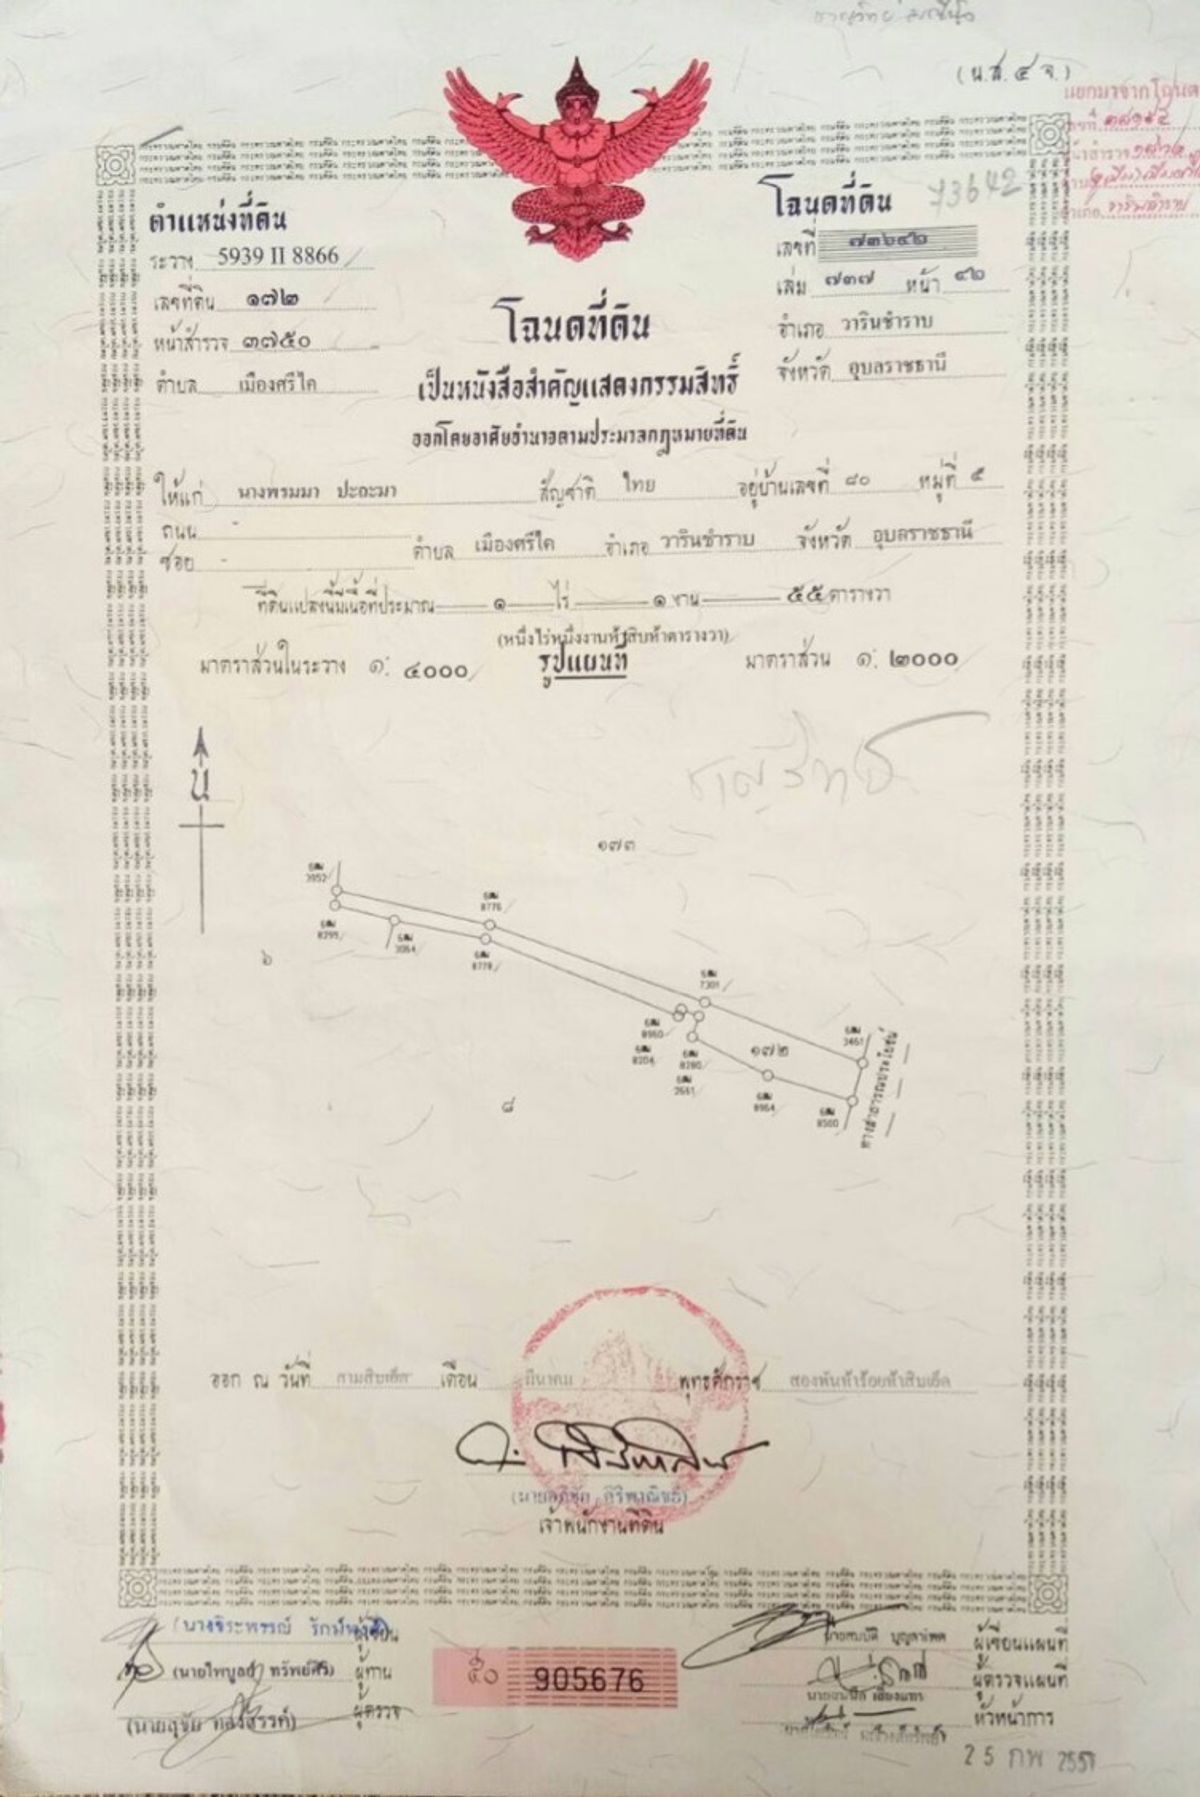 (น.ส. ๔ จ.)
แยกมาจากโฉนด
ตำแหน่งที่ดิน
ระวาง 5939 II 8866
เลขที่ดิน ๑๗๒
หน้าสำรวจ ๓๗๕๐
ตำบล เมืองศรีไค
โฉนดที่ดิน 73642
เลขที่ ๗๓๖๔๒
เล่ม ๗๓๗ หน้า ๔๒
อำเภอ วารินชำราบ
จังหวัด อุบลราชธานี
โฉนดที่ดิน
เป็นหนังสือสำคัญแสดงกรรมสิทธิ์
ออกโดยอาศัยอำนาจตามประมวลกฎหมายที่ดิน
ให้แก่ นางพรมมา ปะถะมา สัญชาติ ไทย อยู่บ้านเลขที่ ๘๐ หมู่ที่ ๕
ถนน -
ซอย - ตำบล เมืองศรีไค อำเภอ วารินชำราบ จังหวัด อุบลราชธานี
ที่ดินแปลงนี้มีเนื้อที่ประมาณ ๑ ไร่ ๑ งาน ๕๕ ตารางวา
(หนึ่งไร่หนึ่งงานห้าสิบห้าตารางวา)
มาตราส่วนในระวาง ๑: ๔๐๐๐ รูปแผนที่ มาตราส่วน ๑: ๒๐๐๐
น
๑๗๓
3952
8776
8295
3064
8778
๖
7301
8960
8204
8280
2661
๑๗๒
3461
8964
8500
ทางสาธารณประโยชน์
๘
ออก ณ วันที่ สามสิบเอ็ด เดือน มีนาคม พุทธศักราช สองพันห้าร้อยห้าสิบเอ็ด
เจ้าพนักงานที่ดิน
(นางจิระพรรณ์ ผู้เขียน
(นายไพบูลย์ ทรัพย์ศิริ) ผู้ทาน
(นายสุชัย ผู้ตรวจ
๕๐ 905676
นายสมบัติ ผู้เขียนแผนที่
ผู้ตรวจแผนที่
หัวหน้าการ
25 กพ 2551